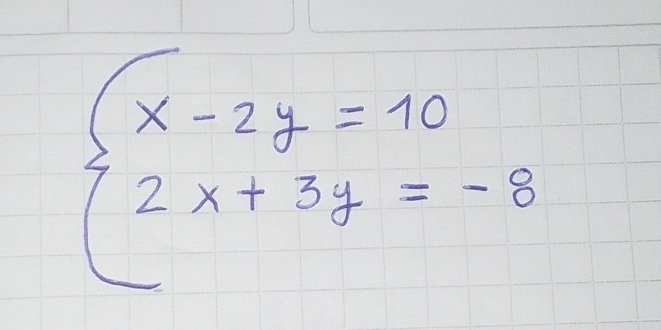 x - 2y = 10
2x + 3y = -8